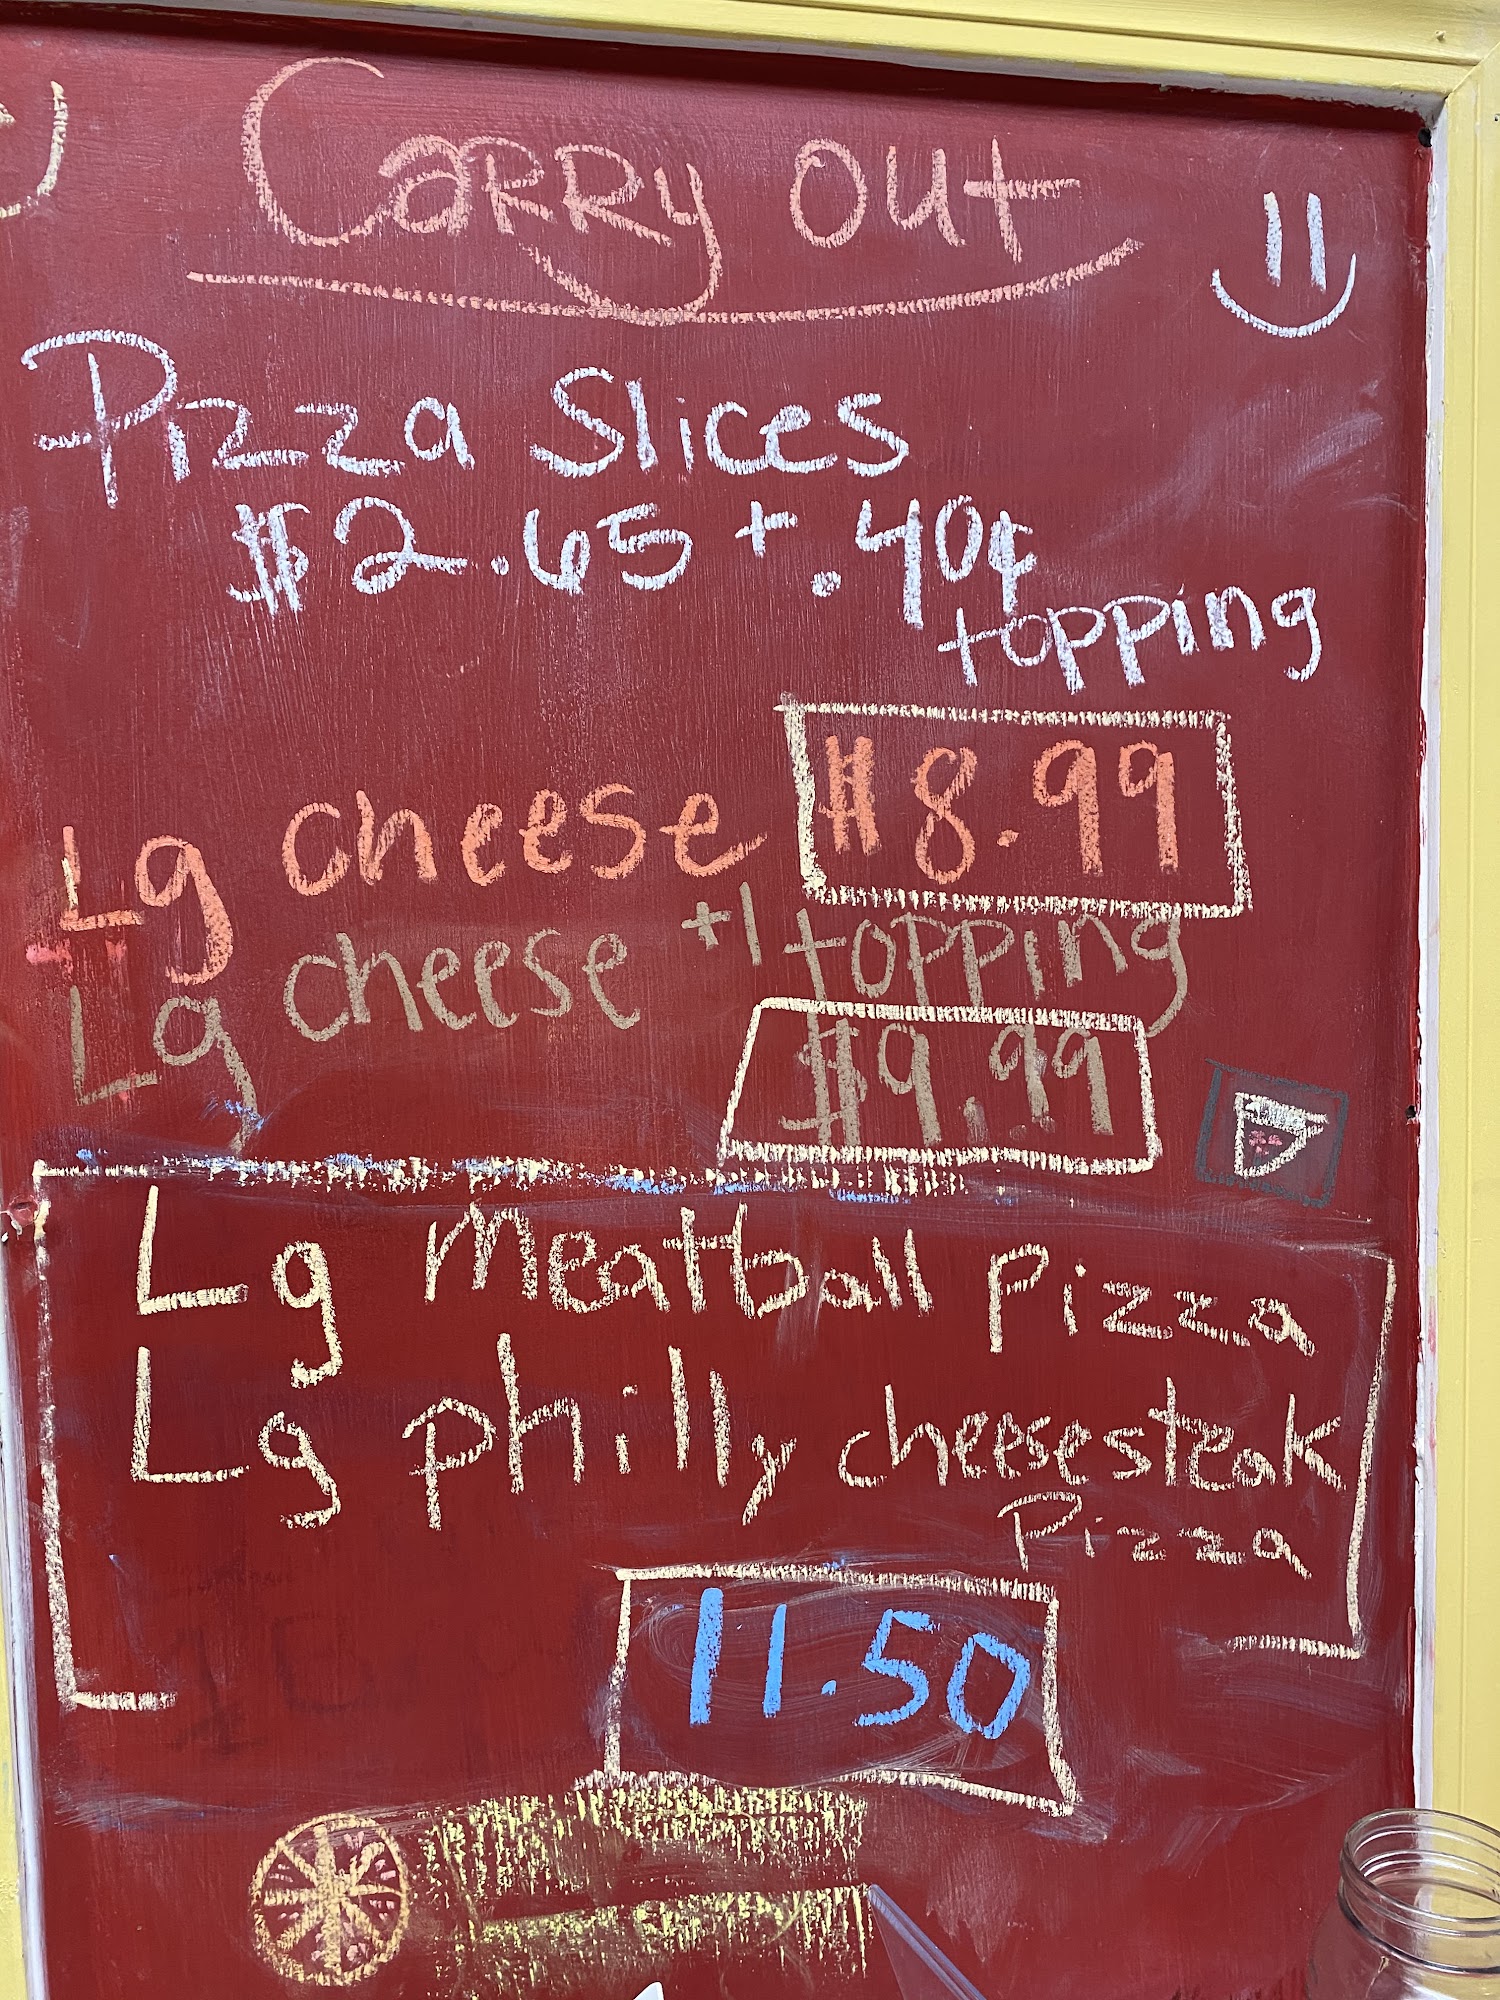 Carry out
Pizza Slices
$2.65 + .40¢
topping
Lg cheese $8.99
Lg cheese +1 topping
$9.99
Lg meatball pizza
Lg philly cheesesteak
Pizza
11.50